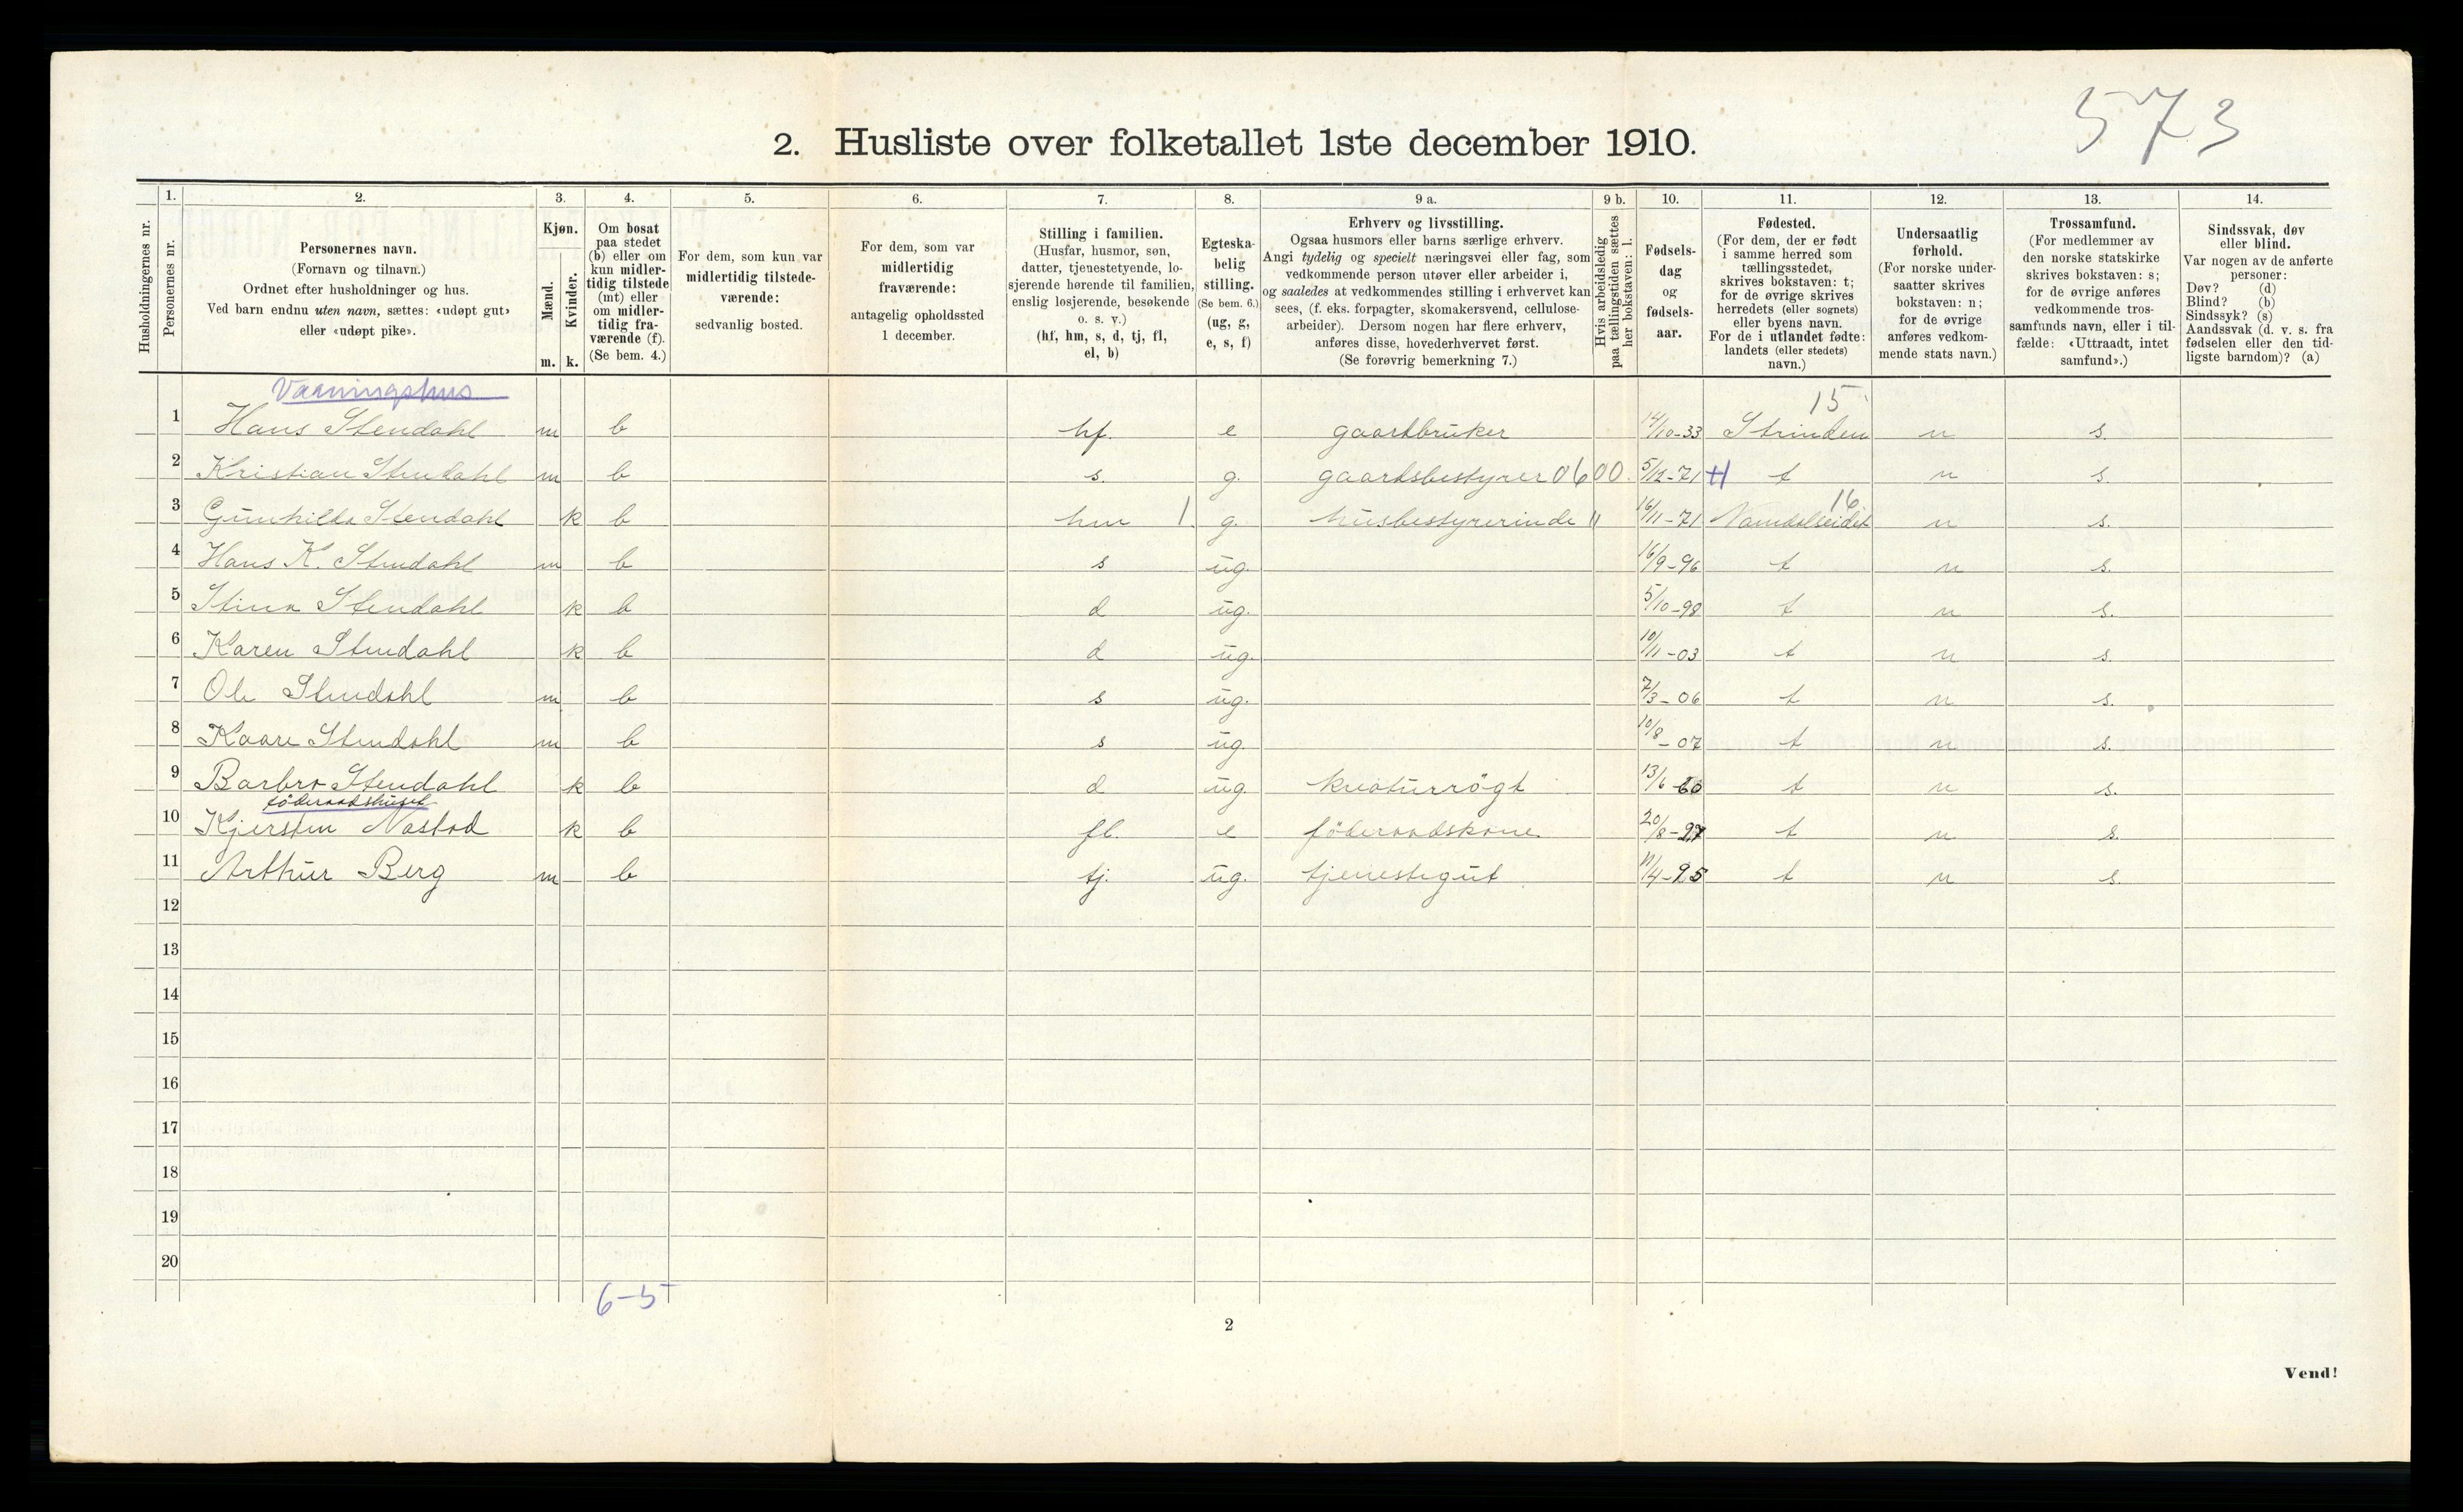 573
2. Husliste over folketallet 1ste december 1910.
Husholdningernes nr.
1. Personernes nr.
2. Personernes navn. (Fornavn og tilnavn.) Ordnet efter husholdninger og hus. Ved barn endnu uten navn, sættes: «udøpt gut» eller «udøpt pike».
3. Kjøn. Mænd. m. Kvinder. k.
4. Om bosat paa stedet (b) eller om kun midlertidig tilstede (mt) eller om midlertidig fraværende (f). (Se bem. 4.)
5. For dem, som kun var midlertidig tilstedeværende: sedvanlig bosted.
6. For dem, som var midlertidig fraværende: antagelig opholdssted 1 december.
7. Stilling i familien. (Husfar, husmor, søn, datter, tjenestetyende, losjerende hørende til familien, enslig losjerende, besøkende o. s. v.) (hf, hm, s, d, tj, fl, el, b)
8. Egteskabelig stilling. (Se bem. 6.) (ug, g, e, s, f)
9 a. Erhverv og livsstilling. Ogsaa husmors eller barns særlige erhverv. Angi tydelig og specielt næringsvei eller fag, som vedkommende person utøver eller arbeider i, og saaledes at vedkommendes stilling i erhvervet kan sees, (f. eks. forpagter, skomakersvend, cellulosearbeider). Dersom nogen har flere erhverv, anføres disse, hovederhvervet først. (Se forøvrig bemerkning 7.)
9 b. Hvis arbeidsledig paa tællingstiden sættes her bokstaven: l.
10. Fødselsdag og fødselsaar.
11. Fødested. (For dem, der er født i samme herred som tællingsstedet, skrives bokstaven: t; for de øvrige skrives herredets (eller sognets) eller byens navn. For de i utlandet fødte: landets (eller stedets) navn.)
12. Undersaatlig forhold. (For norske undersaatter skrives bokstaven: n; for de øvrige anføres vedkommende stats navn.)
13. Trossamfund. (For medlemmer av den norske statskirke skrives bokstaven: s; for de øvrige anføres vedkommende trossamfunds navn, eller i tilfælde: «Uttraadt, intet samfund».)
14. Sindssvak, døv eller blind. Var nogen av de anførte personer: Døv? (d) Blind? (b) Sindssyk? (s) Aandssvak (d. v. s. fra fødselen eller den tidligste barndom)? (a)
Vaaningshus 15
1 Hans Stendahl m b hf. e gaardbruker 14/10-33 Strinden n s.
2 Kristian Stendahl m b s. g. gaardsbestyrer 0600. 5/12-71 t n s.
16
3 Gunhilda Stendahl k b hm 1 g. husbestyrerinde " 16/11-71 Namdalseidet n s.
4 Hans K. Stendahl m b s ug. 16/9-96 t n s.
5 Stina Stendahl k b d ug. 5/10-98 t n s.
6 Karen Stendahl k b d ug. 10/11-03 t n s.
7 Ole Stendahl m b s ug. 7/3-06 t n s.
8 Kaare Stendahl m b s ug. 10/8-07 t n s.
9 Barbro Stendahl k b d ug. kreaturrögt 13/6-60 t n s.
föderaadshuset
10 Kjersten Nastad k b fl. e föderaadskone 20/8-27 t n s.
11 Arthur Berg m b tj. ug. tjenestegut 11/4-95 t n s.
12
13
14
15
16
17
18
19
20
6-5
2
Vend!